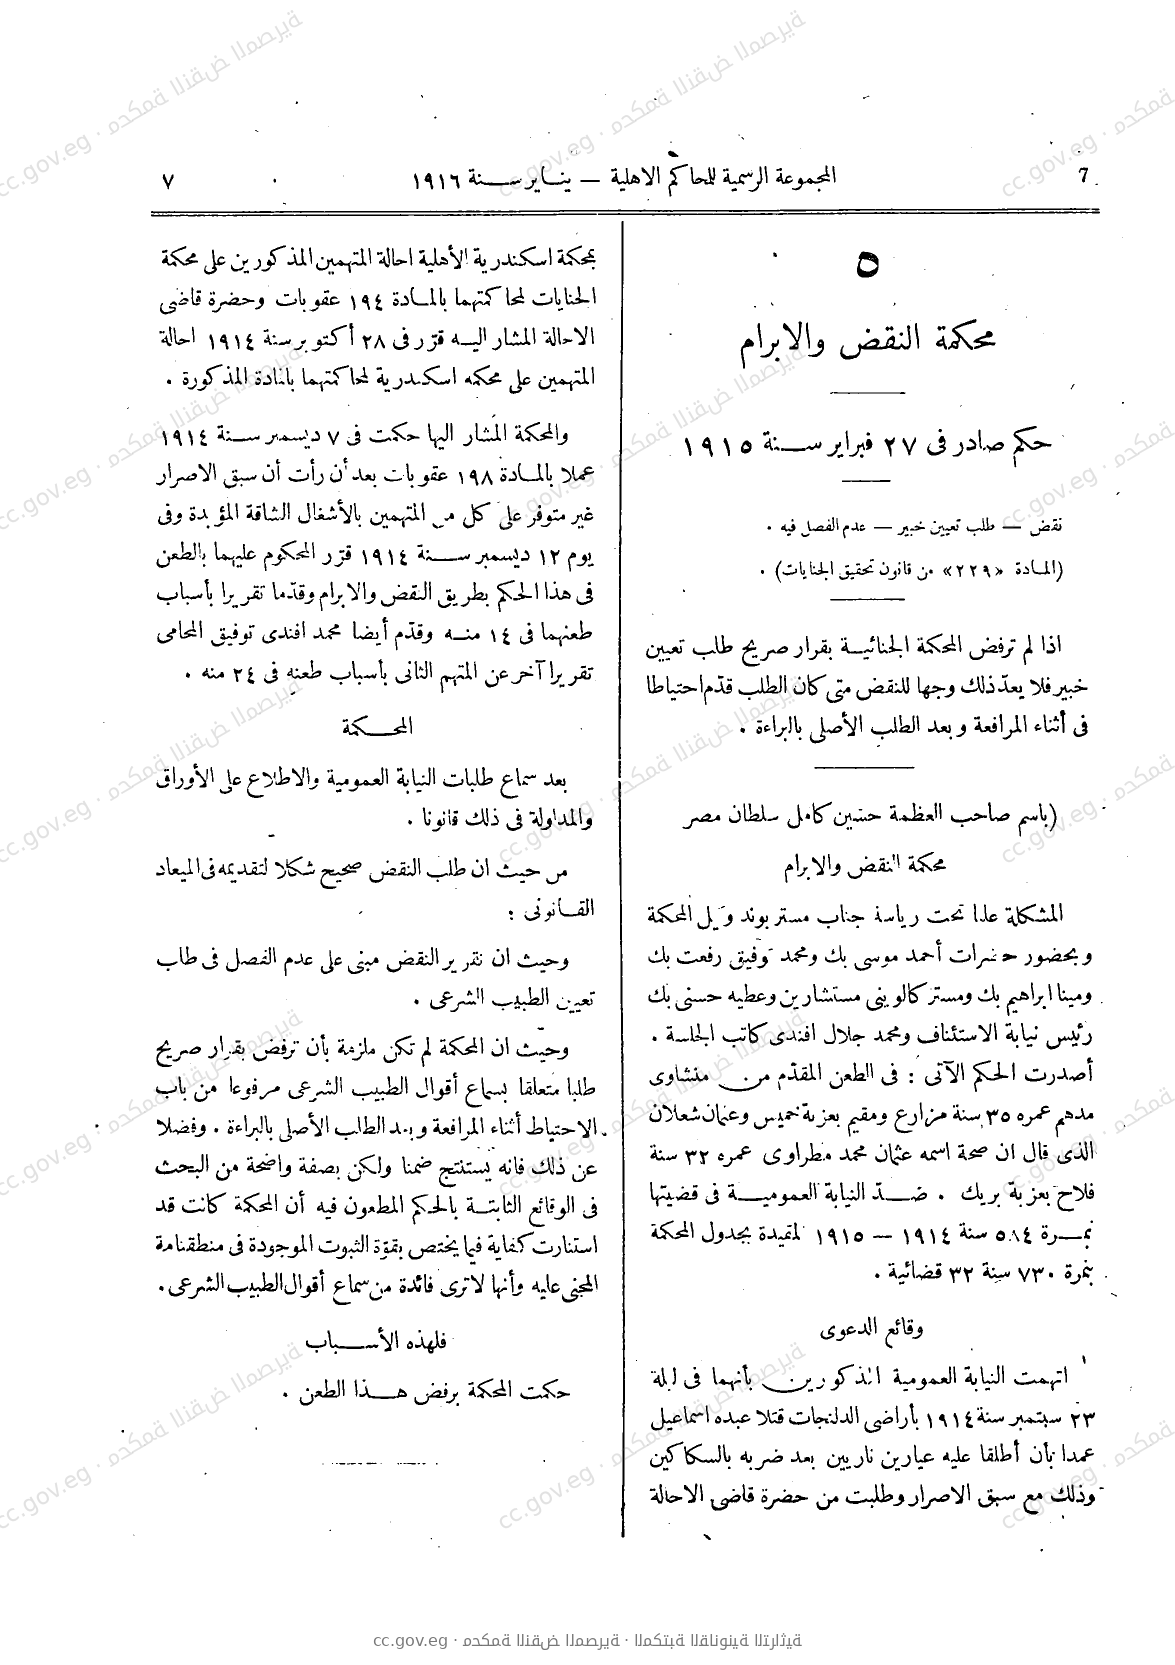 7
المجموعة الرسمية للمحاكم الاهلية — يناير سنة ١٩١٦
٧
٥
محكمة النقض والابرام
حكم صادر فى ٢٧ فبراير سنة ١٩١٥
نقض — طلب تعيين خبير — عدم الفصل فيه .
(المادة «٢٢٩» من قانون تحقيق الجنايات) .
اذا لم ترفض المحكمة الجنائية بقرار صريح طلب تعيين
خبير فلا يعدّ ذلك وجها للنقض متى كان الطلب قدّم احتياطا
فى أثناء المرافعة وبعد الطلب الأصلى بالبراءة .
(باسم صاحب العظمة حسين كامل سلطان مصر
محكمة النقض والابرام
المشكلة علنا تحت رياسة جناب مستر بوند وكيل المحكمة
وبحضور حضرات أحمد موسى بك ومحمد توفيق رفعت بك
ومينا ابراهيم بك ومستر كالوينى مستشارين وعطيه حسنى بك
رئيس نيابة الاستئناف ومحمد جلال افندى كاتب الجلسة .
أصدرت الحكم الآتى : فى الطعن المقدّم من منشاوى
مدهم عمره ٣٥ سنة مزارع ومقيم بعزبة خميس وعثمان شعلان
الذى قال ان صحة اسمه عثمان محمد مطراوى عمره ٣٢ سنة
فلاح بعزبة بريك . ضد النيابة العمومية فى قضيتها
نمرة ٥٨٤ سنة ١٩١٤ — ١٩١٥ المقيدة بجدول المحكمة
بنمرة ٧٣٠ سنة ٣٢ قضائية .
وقائع الدعوى
اتهمت النيابة العمومية المذكورين بأنهما فى ليلة
٢٣ سبتمبر سنة ١٩١٤ بأراضى الدلنجات قتلا عبده اسماعيل
عمدا بأن أطلقا عليه عيارين ناريين بعد ضربه بالسكاكين
وذلك مع سبق الاصرار وطلبت من حضرة قاضى الاحالة
بمحكمة اسكندرية الأهلية احالة المتهمين المذكورين على محكمة
الجنايات لمحاكمتهما بالمادة ١٩٤ عقوبات وحضرة قاضى
الاحالة المشار اليه قرّر فى ٢٨ أكتوبر سنة ١٩١٤ احالة
المتهمين على محكمة اسكندرية لمحاكمتهما بالمادة المذكورة .
والمحكمة المشار اليها حكمت فى ٧ ديسمبر سنة ١٩١٤
عملا بالمادة ١٩٨ عقوبات بعد أن رأت أن سبق الاصرار
غير متوفر على كل من المتهمين بالأشغال الشاقة المؤبدة وفى
يوم ١٢ ديسمبر سنة ١٩١٤ قرّر المحكوم عليهما بالطعن
فى هذا الحكم بطريق النقض والابرام وقدّما تقريرا بأسباب
طعنهما فى ١٤ منه وقدّم أيضا محمد افندى توفيق المحامى
تقريرا آخر عن المتهم الثانى بأسباب طعنه فى ٢٤ منه .
المحكمة
بعد سماع طلبات النيابة العمومية والاطلاع على الأوراق
والمداولة فى ذلك قانونا .
من حيث ان طلب النقض صحيح شكلا لتقديمه فى الميعاد
القانونى :
وحيث ان تقرير النقض مبنى على عدم الفصل فى طلب
تعيين الطبيب الشرعى .
وحيث ان المحكمة لم تكن ملزمة بأن ترفض بقرار صريح
طلبا متعلقا بسماع أقوال الطبيب الشرعى مرفوعا من باب
الاحتياط أثناء المرافعة وبعد الطلب الأصلى بالبراءة . وفضلا
عن ذلك فانه يستنتج ضمنا ولكن بصفة واضحة من البحث
فى الوقائع الثابتة بالحكم المطعون فيه أن المحكمة كانت قد
استنارت كفاية فيما يختص بقوّة الثبوت الموجودة فى منطقنامة
المجنى عليه وأنها لا ترى فائدة من سماع أقوال الطبيب الشرعى .
فلهذه الأسباب
حكمت المحكمة برفض هذا الطعن .
cc.gov.eg · محكمة النقض المصرية · المكتبة القانونية التراثية